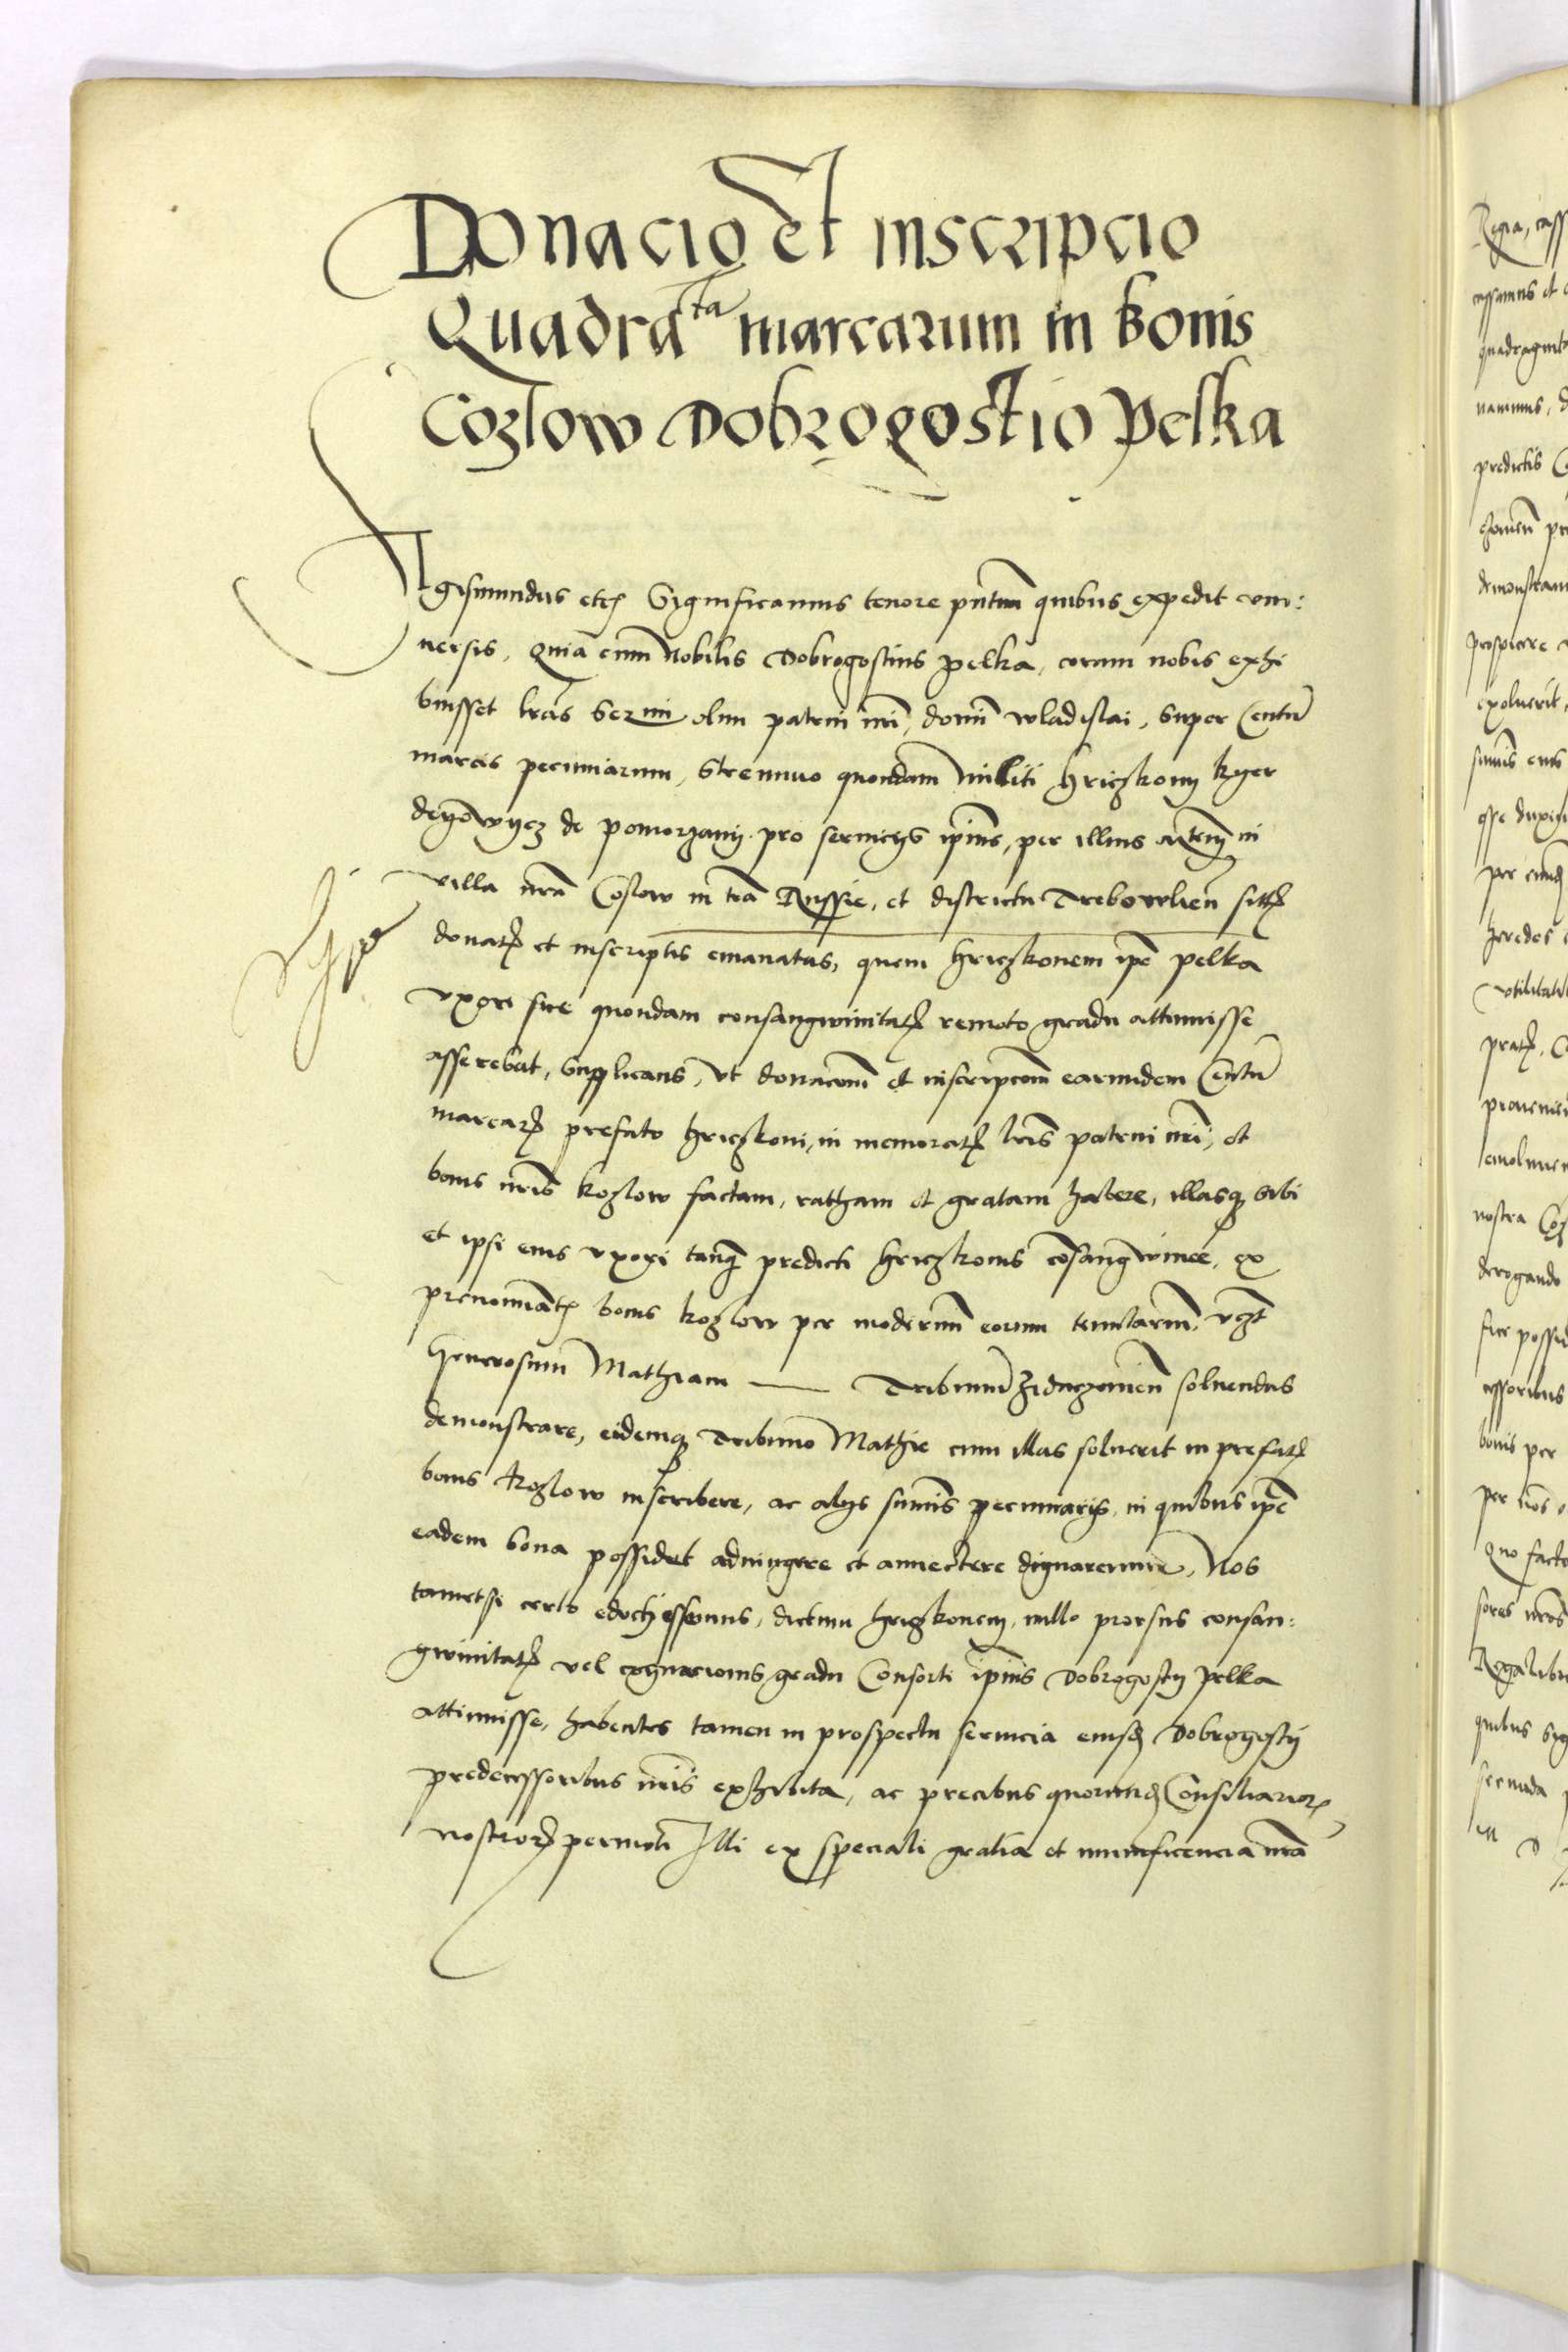 Donacio et inscripcio
Quadra^ta marcarum in bonis
Cozlow Dobrogostio Pelka
Sigismundus etc̃ Significamus tenore pñtm̃ quibus expedit vni:
uersis, Quia cum Nobilis Dobrogostius pelka, coram nobis exhi
buisset lras Sermi olim patrui nri, domi wladislai, super Centũ
marcis pecuniarum, Strennuo quondam militi Hriczkoni kyer
deyowycz de pomorzany pro seruicys ipius, per illius mtem in
villa nra Coslow in tra Russie, et districtu Trebowlien̄ sitis
donatis et inscriptis emanatas, quem hriczkonem ipe pelka
vxori sue quondam consangwinitatis remoto gradu attinuisse
asserebat, Supplicans, vt donacom̄ et inscripcom̄ earundem Centũ
marcarũ prefato hriczkoni, in memoratis lris patrui nri, et
bonis nris kozlow factam, ratham et gratam habere, illasq̃ sibi
et ipsi eius vxori tanq̃ predicti hriczkonis cōsangwinee, ex
prenominatis bonis kozlow per modernum eorum tenutarium, vzt
Generosum Mathiam — Tribunũ Zidaczouien̄ soluendas
demonstrare, eidemq̃ Tribuno Mathie cum illas soluerit in prefatis
bonis kozlow inscribere, ac alys summis pecuniarys, in quibus ipe
eadem bona possidet adiungere et annectere dignaremur, Nos
tametsi certo edocti essemus, dictum hriczkonem, nullo prorsus consan:
gwinitatis vel cognacionis gradu Consorti ipius Dobrogosty pelka
attinuisse, habentes tamen in prospectu seruicia eiusd̃ Dobrogosty
predecessoribus nris exhibita, ac precibus quorund̃ Consiliariorũ
nostrorũ permoti Illi ex speciali gratia et munificencia nra
quadragint
predictis
demonstram
prospicere
exoluerit,
heredes
nostra
derogando
bonis per
Quo facto
quibus